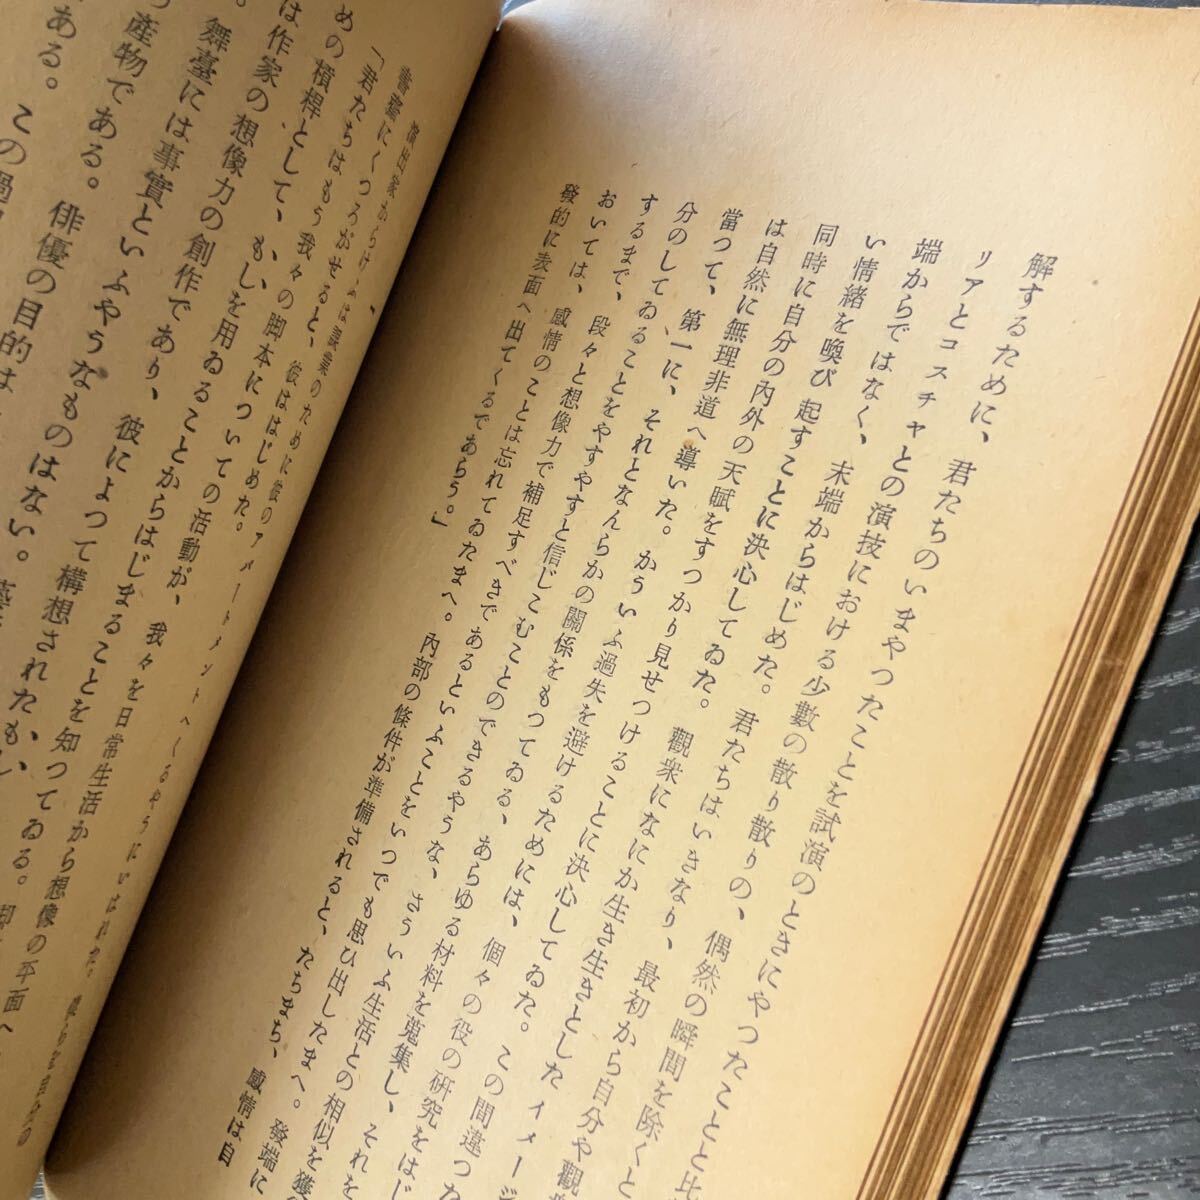 解するために、君たちのいまやつたことを試演のときにやつたことと比
リアとコスチャとの演技における少數の散り散りの、偶然の瞬間を除くと
端からではなく、末端からはじめた。君たちはいきなり、最初から自分や觀
い情緒を喚び起すことに決心してゐた。觀衆になにか生き生きとしたイメージ
同時に自分の内外の天賦をすつかり見せつけることに決心してゐた。この間違つた
は自然に無理非道へ導いた。かういふ過失を避けるためには、個々の役の研究をはじ
當つて、第一に、それとなんらかの關係をもつてゐる、あらゆる材料を蒐集し、それを
分のしてゐることをやすやすと信じこむことのできるやうな、さういふ生活との相似を獲
するまで、段々と想像力で補足すべきであるといふことをいつでも思ひ出したまへ。發端に
おいては、感情のことは忘れてゐたまへ。内部の條件が準備されると、たちまち、感情は自
發的に表面へ出てくるであらう。」
演出家からけふは授業のために彼のアパートメントへくるやうにいはれた。
書齋にくつろがせると、彼ははじめた。
「君たちはもう我々の脚本についての活動が、我々を日常生活から想像の平面へ
めの槓桿として、もしを用ゐることからはじまることを知つてゐる。脚
は作家の想像力の創作であり、彼によつて構想されたもし
。舞臺には事實といふやうなものはない。藝
の産物である。俳優の目的は
ある。この過